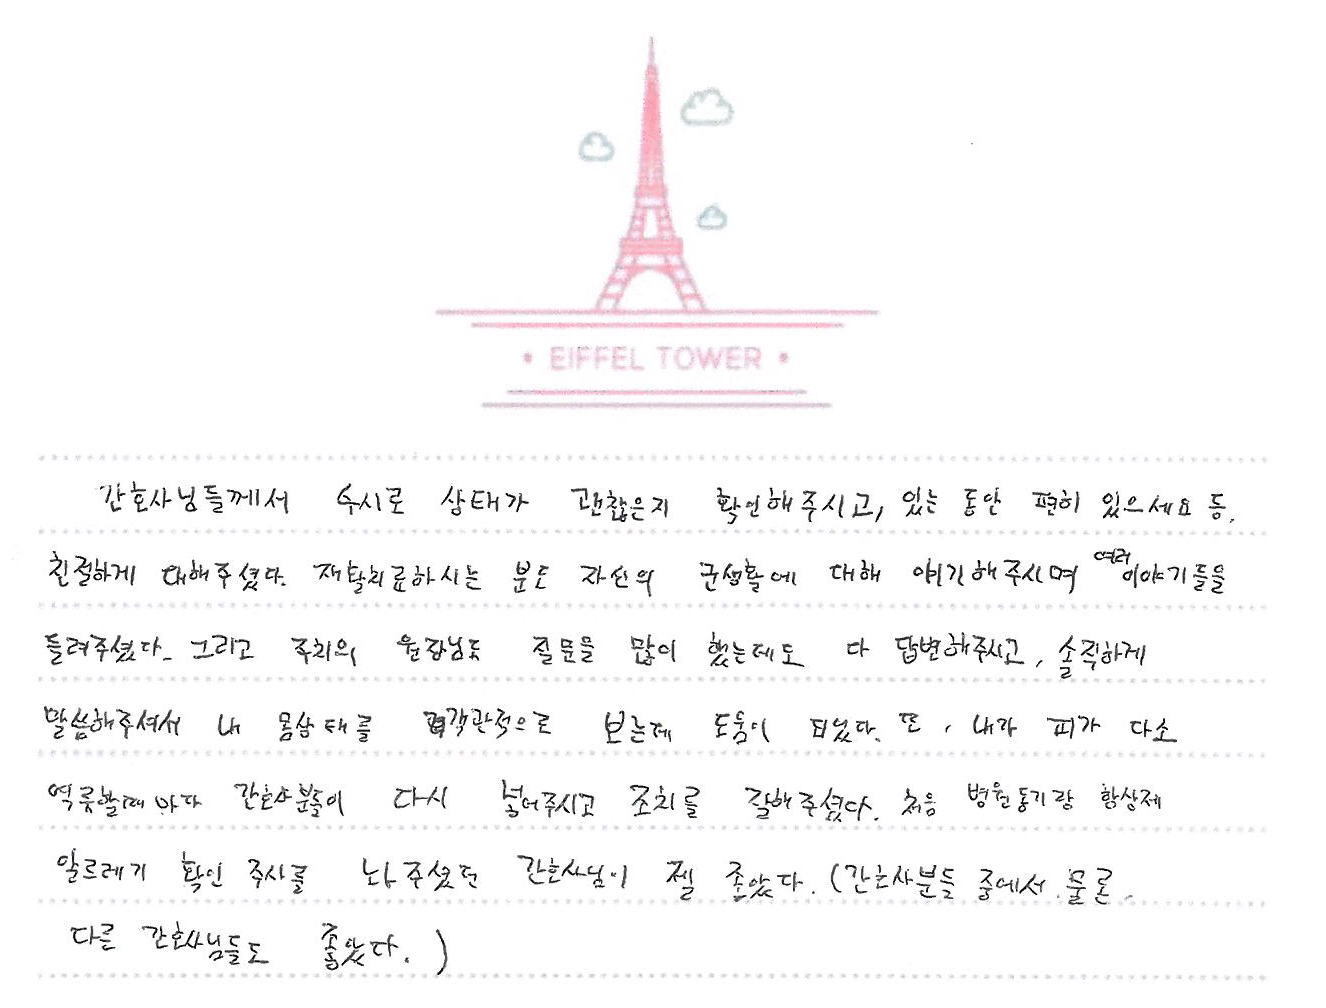 • EIFFEL TOWER •
간호사님들께서 수시로 상태가 괜찮은지 확인해주시고, 있는 동안 편히 있으세요 등,
친절하게 대해주셨다. 재활치료하시는 분도 자신의 군생활에 대해 얘기해주시며 여러 이야기들을
들려주셨다. 그리고 주치의 원장님도 질문을 많이 했는데도 다 답변해주시고, 솔직하게
말씀해주셔서 내 몸상태를 객관적으로 보는데 도움이 되었다. 또, 내가 피가 다소
역류할때마다 간호사분들이 다시 넣어주시고 조치를 잘해주셨다. 처음 병원동기랑 항상제
알르레기 확인 주사를 놔주셨던 간호사님이 젤 좋았다. (간호사분들 중에서. 물론,
다른 간호사님들도 좋았다.)